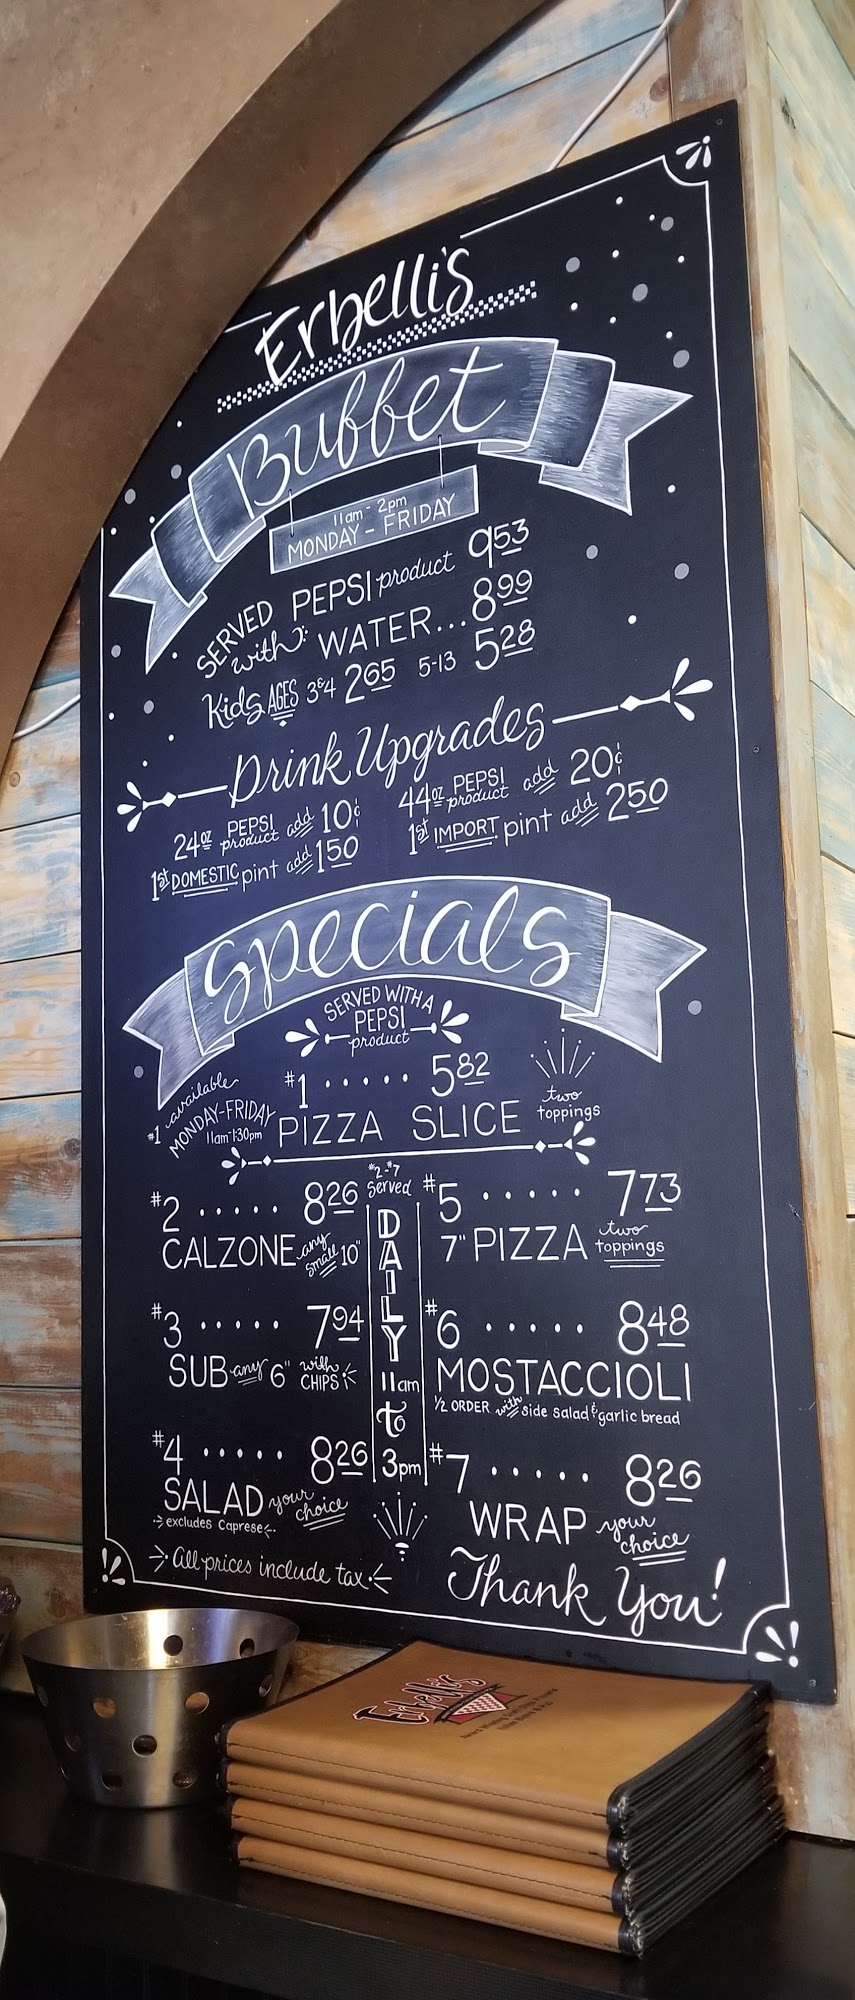 Erbelli's
Buffet
11am - 2pm
MONDAY - FRIDAY
SERVED with: PEPSI product 9.53
WATER... 8.99
Kids AGES 3&4 2.65 5-13 5.28
Drink Upgrades
24oz PEPSI product add 10¢
44oz PEPSI product add 20¢
1st DOMESTIC pint add 1.50
1st IMPORT pint add 2.50
Specials
SERVED WITH A
PEPSI
product
#1 ..... 5.82
PIZZA SLICE two toppings
#1 available
MONDAY-FRIDAY
11am-1:30pm
#2-#7
Served
DAILY
11am
to
3pm
#2 ..... 8.26
CALZONE any small 10"
#3 ..... 7.94
SUB any 6" with CHIPS
#4 ..... 8.26
SALAD your choice
excludes Caprese
#5 ..... 7.73
7" PIZZA two toppings
#6 ..... 8.48
MOSTACCIOLI
1/2 ORDER with side salad & garlic bread
#7 ..... 8.26
WRAP your choice
All prices include tax
Thank You!
Erbelli's